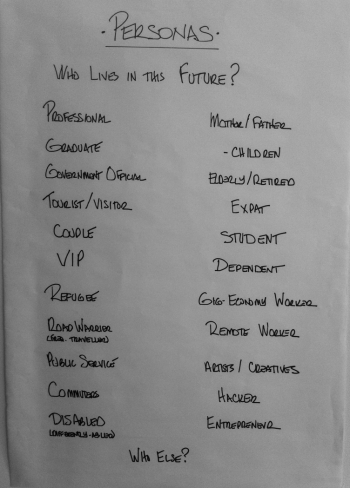 · PERSONAS ·
WHO LIVES IN THIS FUTURE?
PROFESSIONAL
GRADUATE
GOVERNMENT OFFICIAL
TOURIST/VISITOR
COUPLE
VIP
REFUGEE
ROAD WARRIOR
(FREQ. TRAVELLING)
PUBLIC SERVICE
COMMUTERS
DISABLED
(DIFFERENTLY-ABLED)
MOTHER/FATHER
- CHILDREN
ELDERLY/RETIRED
EXPAT
STUDENT
DEPENDENT
GIG-ECONOMY WORKER
REMOTE WORKER
ARTISTS / CREATIVES
HACKER
ENTREPRENEUR
WHO ELSE?